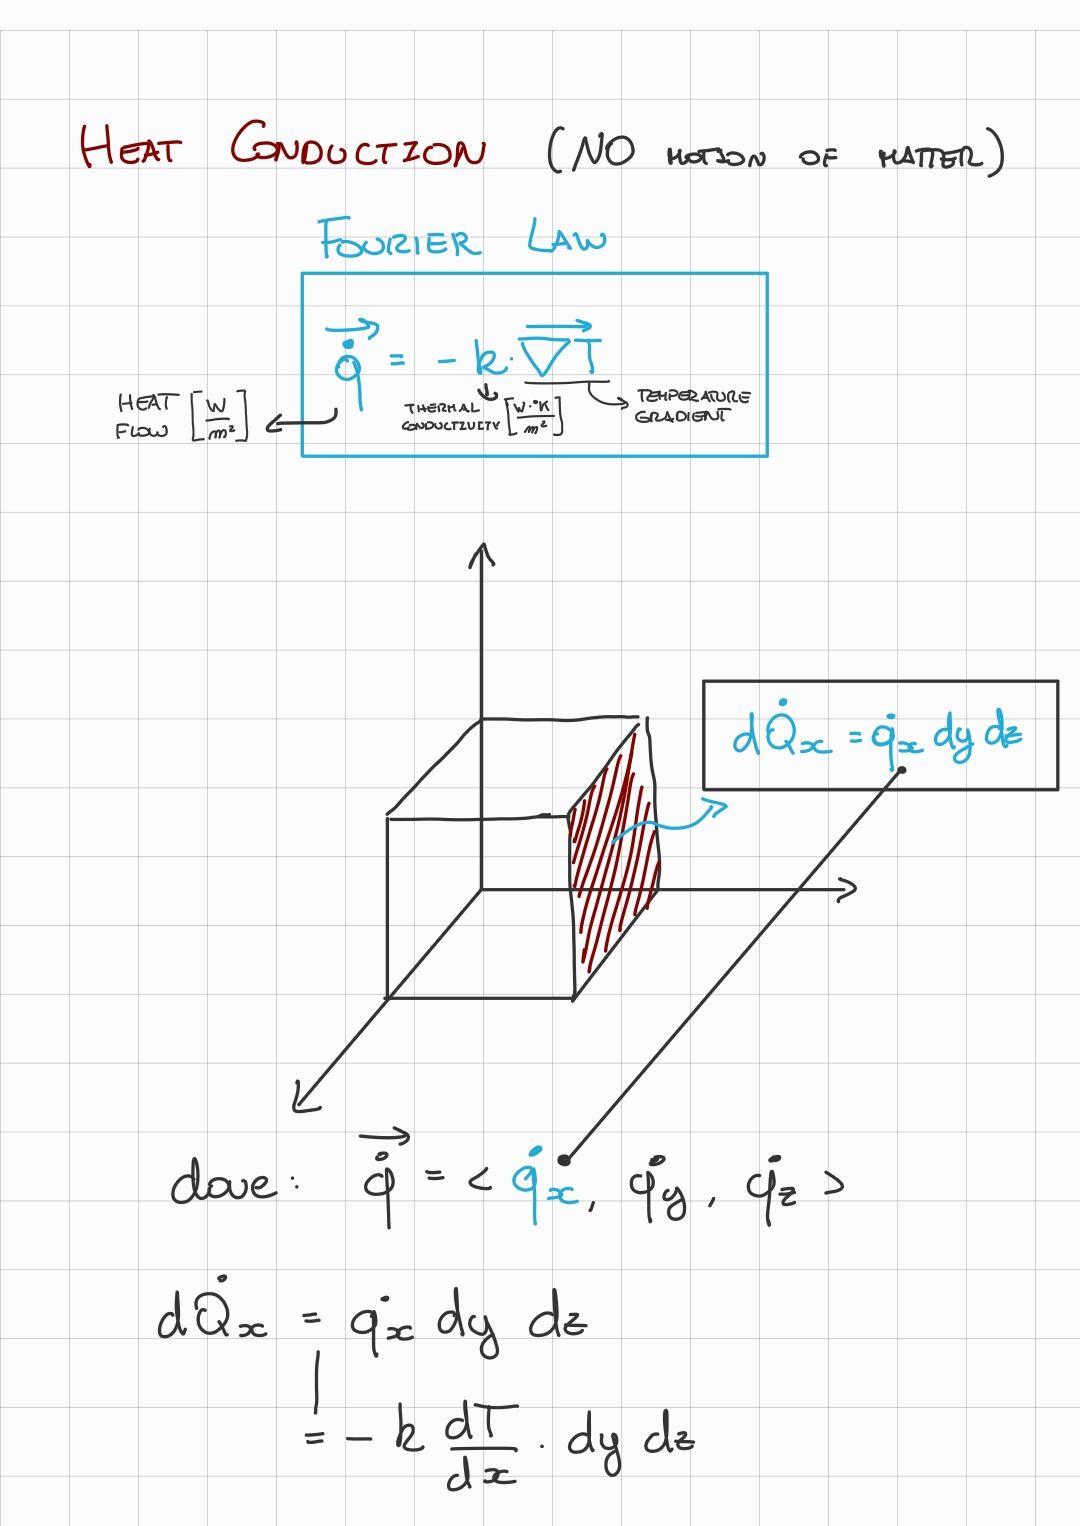 HEAT CONDUCTION (NO MOTION OF MATTER)
FOURIER LAW
q̇⃗ = - k · ∇T⃗
HEAT FLOW [W/m²]
THERMAL CONDUCTIVITY [W·°K/m²]
TEMPERATURE GRADIENT
dQ̇x = q̇x dy dz
dove: q̇⃗ = < q̇x, q̇y, q̇z >
dQ̇x = q̇x dy dz
= - k dT/dx · dy dz